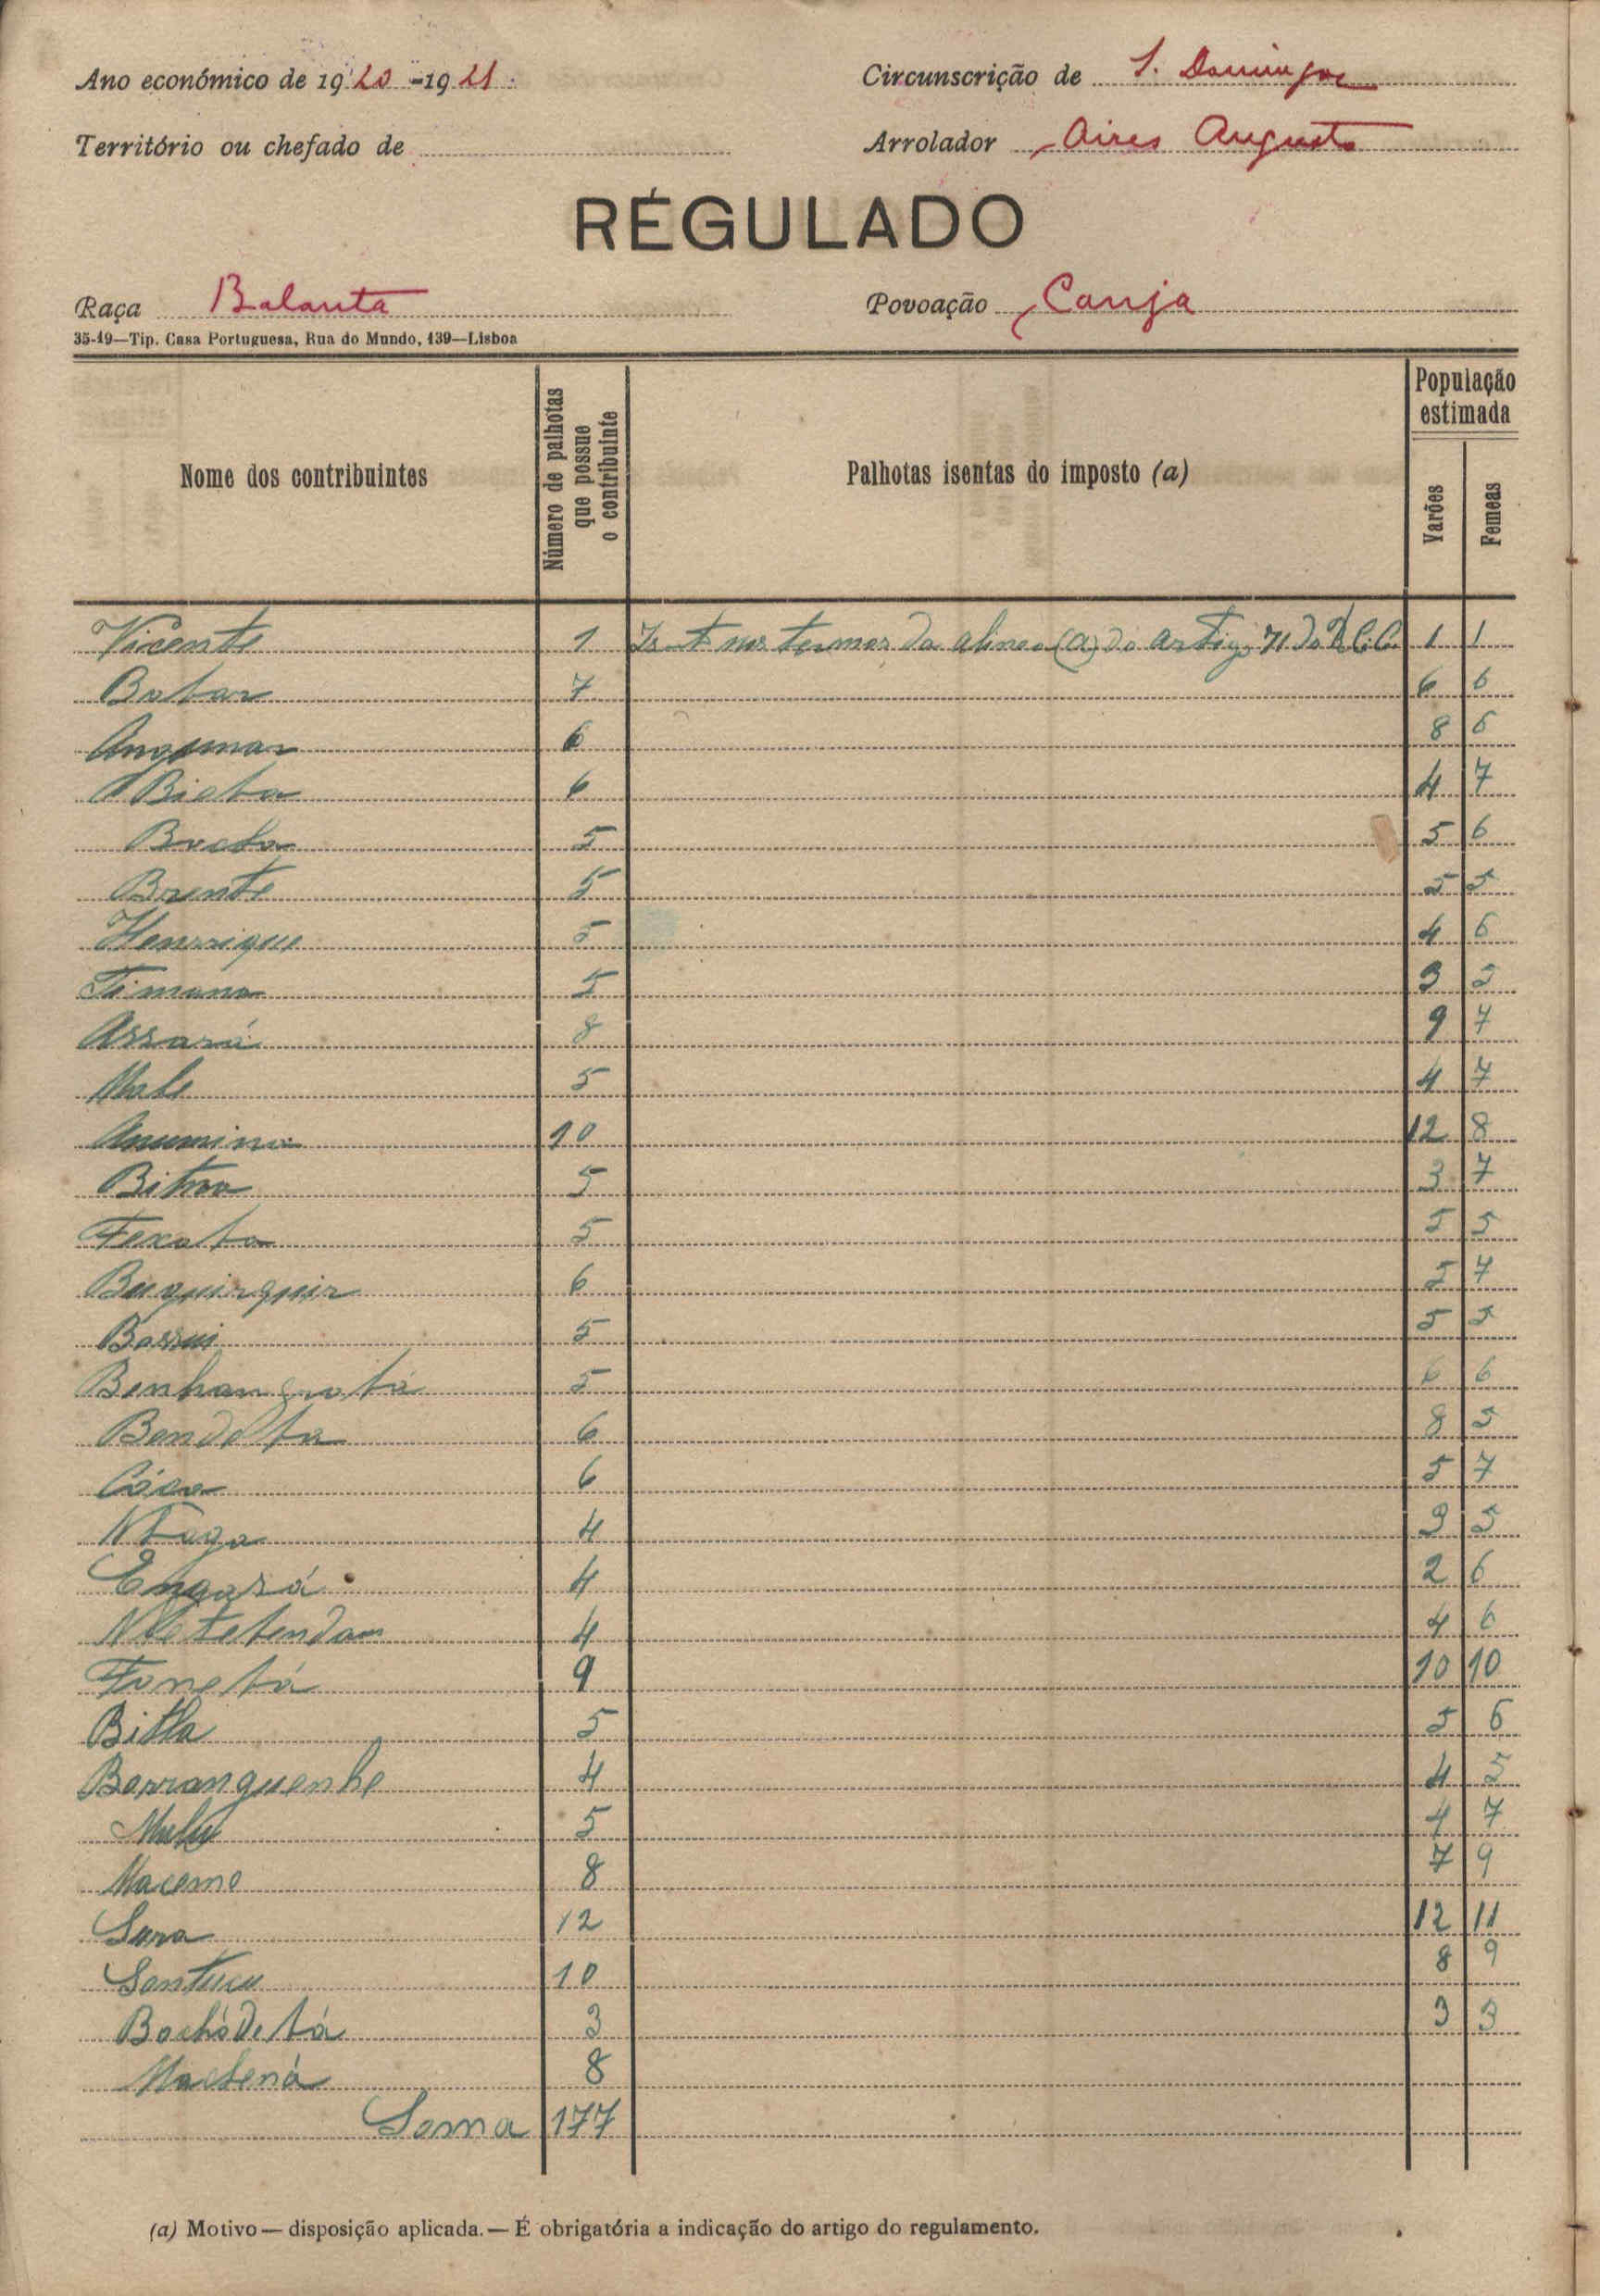 Ano económico de 1920-1921.
Circunscrição de S. Domingos
Território ou chefado de
Arrolador Aires Augusto
RÉGULADO
Raça Balanta
Povoação Canja
35-19—Tip. Casa Portuguesa, Rua do Mundo, 139—Lisboa
Nome dos contribuintes
Número de palhotas que possue o contribuinte
Palhotas isentas do imposto (a)
População estimada
Varões
Femeas
Vicente 1 nos termos da alinea (a) do artigo 71 do 1 1
7 6 6
6 8 6
Bieta 6 4 7
5 5 6
Brente 5 5 5
Henrrique 5 4 6
5 3 5
Assará 8 9 7
Male 5 4 7
10 12 8
5 3 7
5 5 5
Buquirquir 6 5 7
Bassui 5 5 5
5 6 6
Bendeta 6 8 5
Cóca 6 5 7
4 3 5
Engará 4 2 6
4 4 6
Fonetá 9 10 10
Bitla 5 5 6
Barranquenhe 4 4 5
5 4 7
Macamo 8 7 9
Sara 12 12 11
10 8 9
Bachódetá 3 3 3
Mactená 8
Soma 177
(a) Motivo — disposição aplicada. — É obrigatória a indicação do artigo do regulamento.